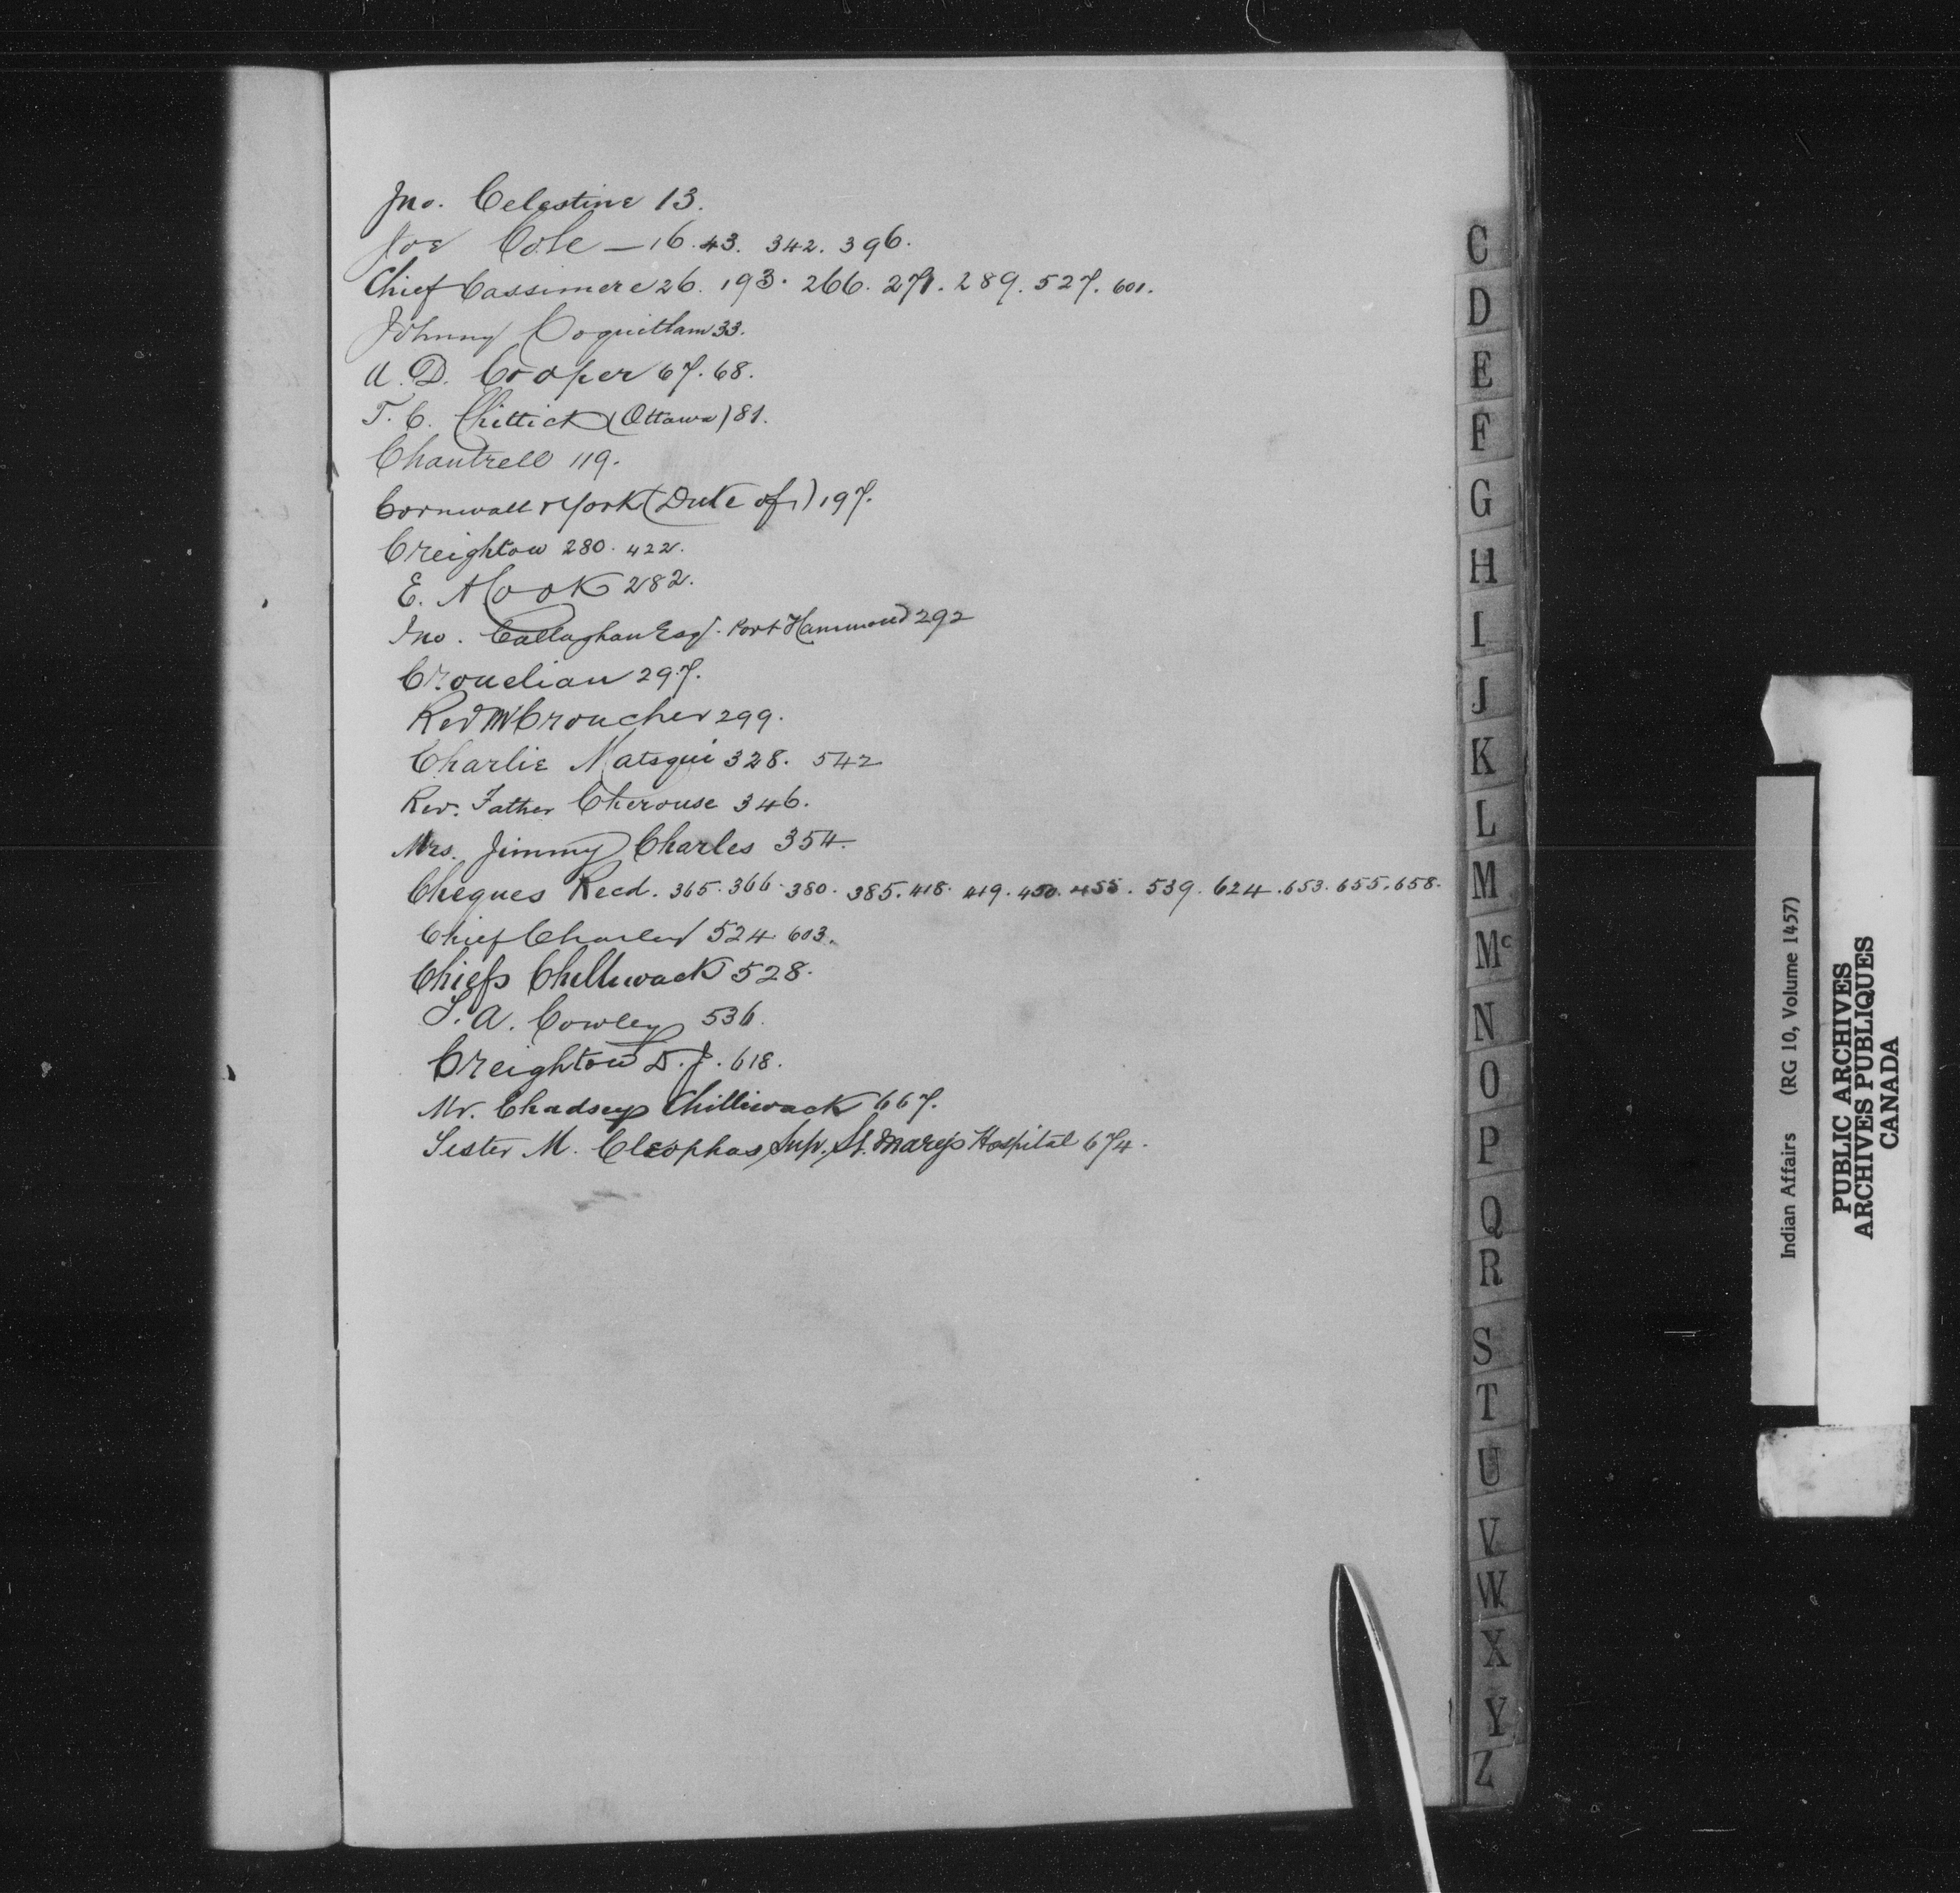 Jno. Celestine 13.
Joe Cole — 16. 43. 342. 396.
Chief Cassimere 26. 193. 266. 271. 289. 527. 601.
Johnny Coquitlam 33.
A. D. Cooper 67. 68.
T. C. Chittick (Ottawa) 81.
Chantrell 119.
Cornwall & York (Duke of) 197.
Creighton 280. 422.
E. A Cook 282.
Jno. Callaghan Esq. Port Hammond 292
Crouelian 297.
Revd Mr Croucher 299.
Charlie Matsqui 328. 542
Rev. Father Cherouse 346.
Mrs. Jimmy Charles 354.
Cheques Recd. 365. 366. 380. 385. 418. 419. 450. 455. 539. 624. 653. 655. 658.
Chief Charles 524 603.
Chiefs Chilliwack 528.
S. A. Cowley 536.
Creighton D. J. 618.
Mr. Chadsey Chilliwack 667.
Sister M. Cleophas, Sup. St. Mary's Hospital 674.
C
D
E
F
G
H
I
J
K
L
M
Mc
N
O
P
Q
R
S
T
U
V
W
X
Y
Z
Indian Affairs (RG 10, Volume 1457)
PUBLIC ARCHIVES
ARCHIVES PUBLIQUES
CANADA